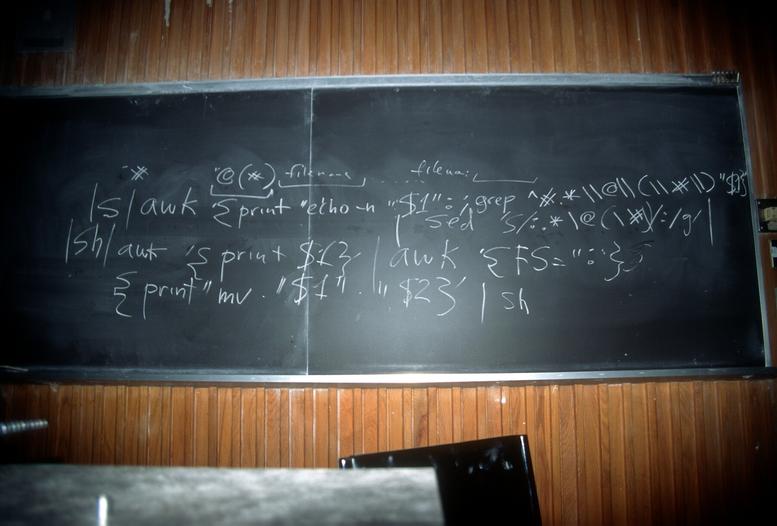 -* "@(*) filename ..... filenam
|s|awk {print "echo -n "$1":";grep ^*.*\\@\\(\\*\\)"$1}
| sed 's/:.*\@(\*)/:/g' |
|sh| awk '{print $1}' | awk '{FS=":"}
{print "mv ."$1"."$2}' | sh